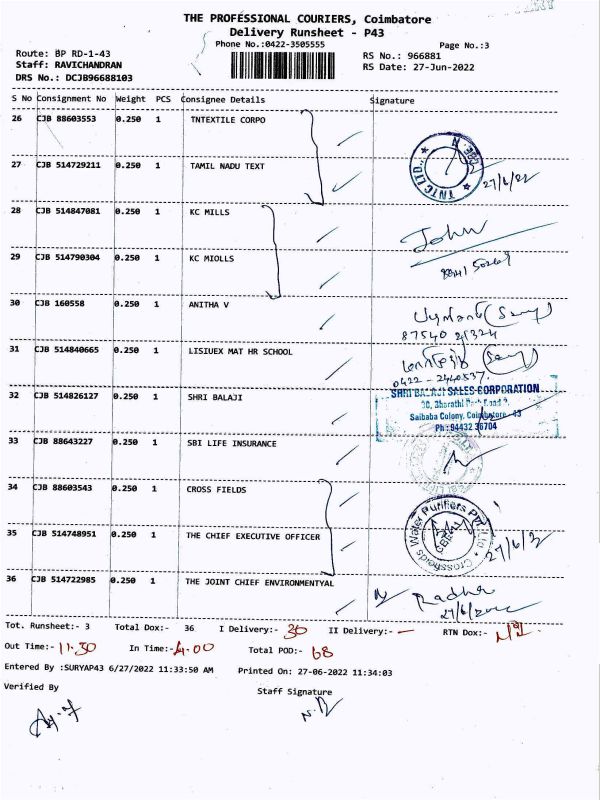 THE PROFESSIONAL COURIERS, Coimbatore
Delivery Runsheet - P43
Phone No.:0422-3505555
Page No.:3
Route: BP RD-1-43
RS No.: 966881
Staff: RAVICHANDRAN
RS Date: 27-Jun-2022
DRS No.: DCJB96688103
S No Consignment No Weight PCS Consignee Details Signature
26 CJB 88603553 0.250 1 TNTEXTILE CORPO
27 CJB 514729211 0.250 1 TAMIL NADU TEXT
TNTC LTD., CBE.
27/6/22
28 CJB 514847081 0.250 1 KC MILLS
John
29 CJB 514790304 0.250 1 KC MIOLLS
30 CJB 160558 0.250 1 ANITHA V
87540 21324
31 CJB 514840665 0.250 1 LISIUEX MAT HR SCHOOL
0422-2440537.
32 CJB 514826127 0.250 1 SHRI BALAJI
SHRI BALAJI SALES CORPORATION
30, Bharathi Park
Saibaba Colony, Coimbatore - 43
Ph : 94432 36704
33 CJB 88643227 0.250 1 SBI LIFE INSURANCE
34 CJB 88603543 0.250 1 CROSS FIELDS
Crossfields Water Purifiers Pvt. Ltd
27/6/2
35 CJB 514748951 0.250 1 THE CHIEF EXECUTIVE OFFICER
36 CJB 514722985 0.250 1 THE JOINT CHIEF ENVIRONMENTYAL
Radha
27/6/2022
Tot. Runsheet:- 3 Total Dox:- 36 I Delivery:- 36 II Delivery:- — RTN Dox:- Nil
Out Time:- 11.30 In Time:- 4.00 Total POD:- 68
Entered By :SURYAP43 6/27/2022 11:33:50 AM Printed On: 27-06-2022 11:34:03
Verified By
Staff Signature